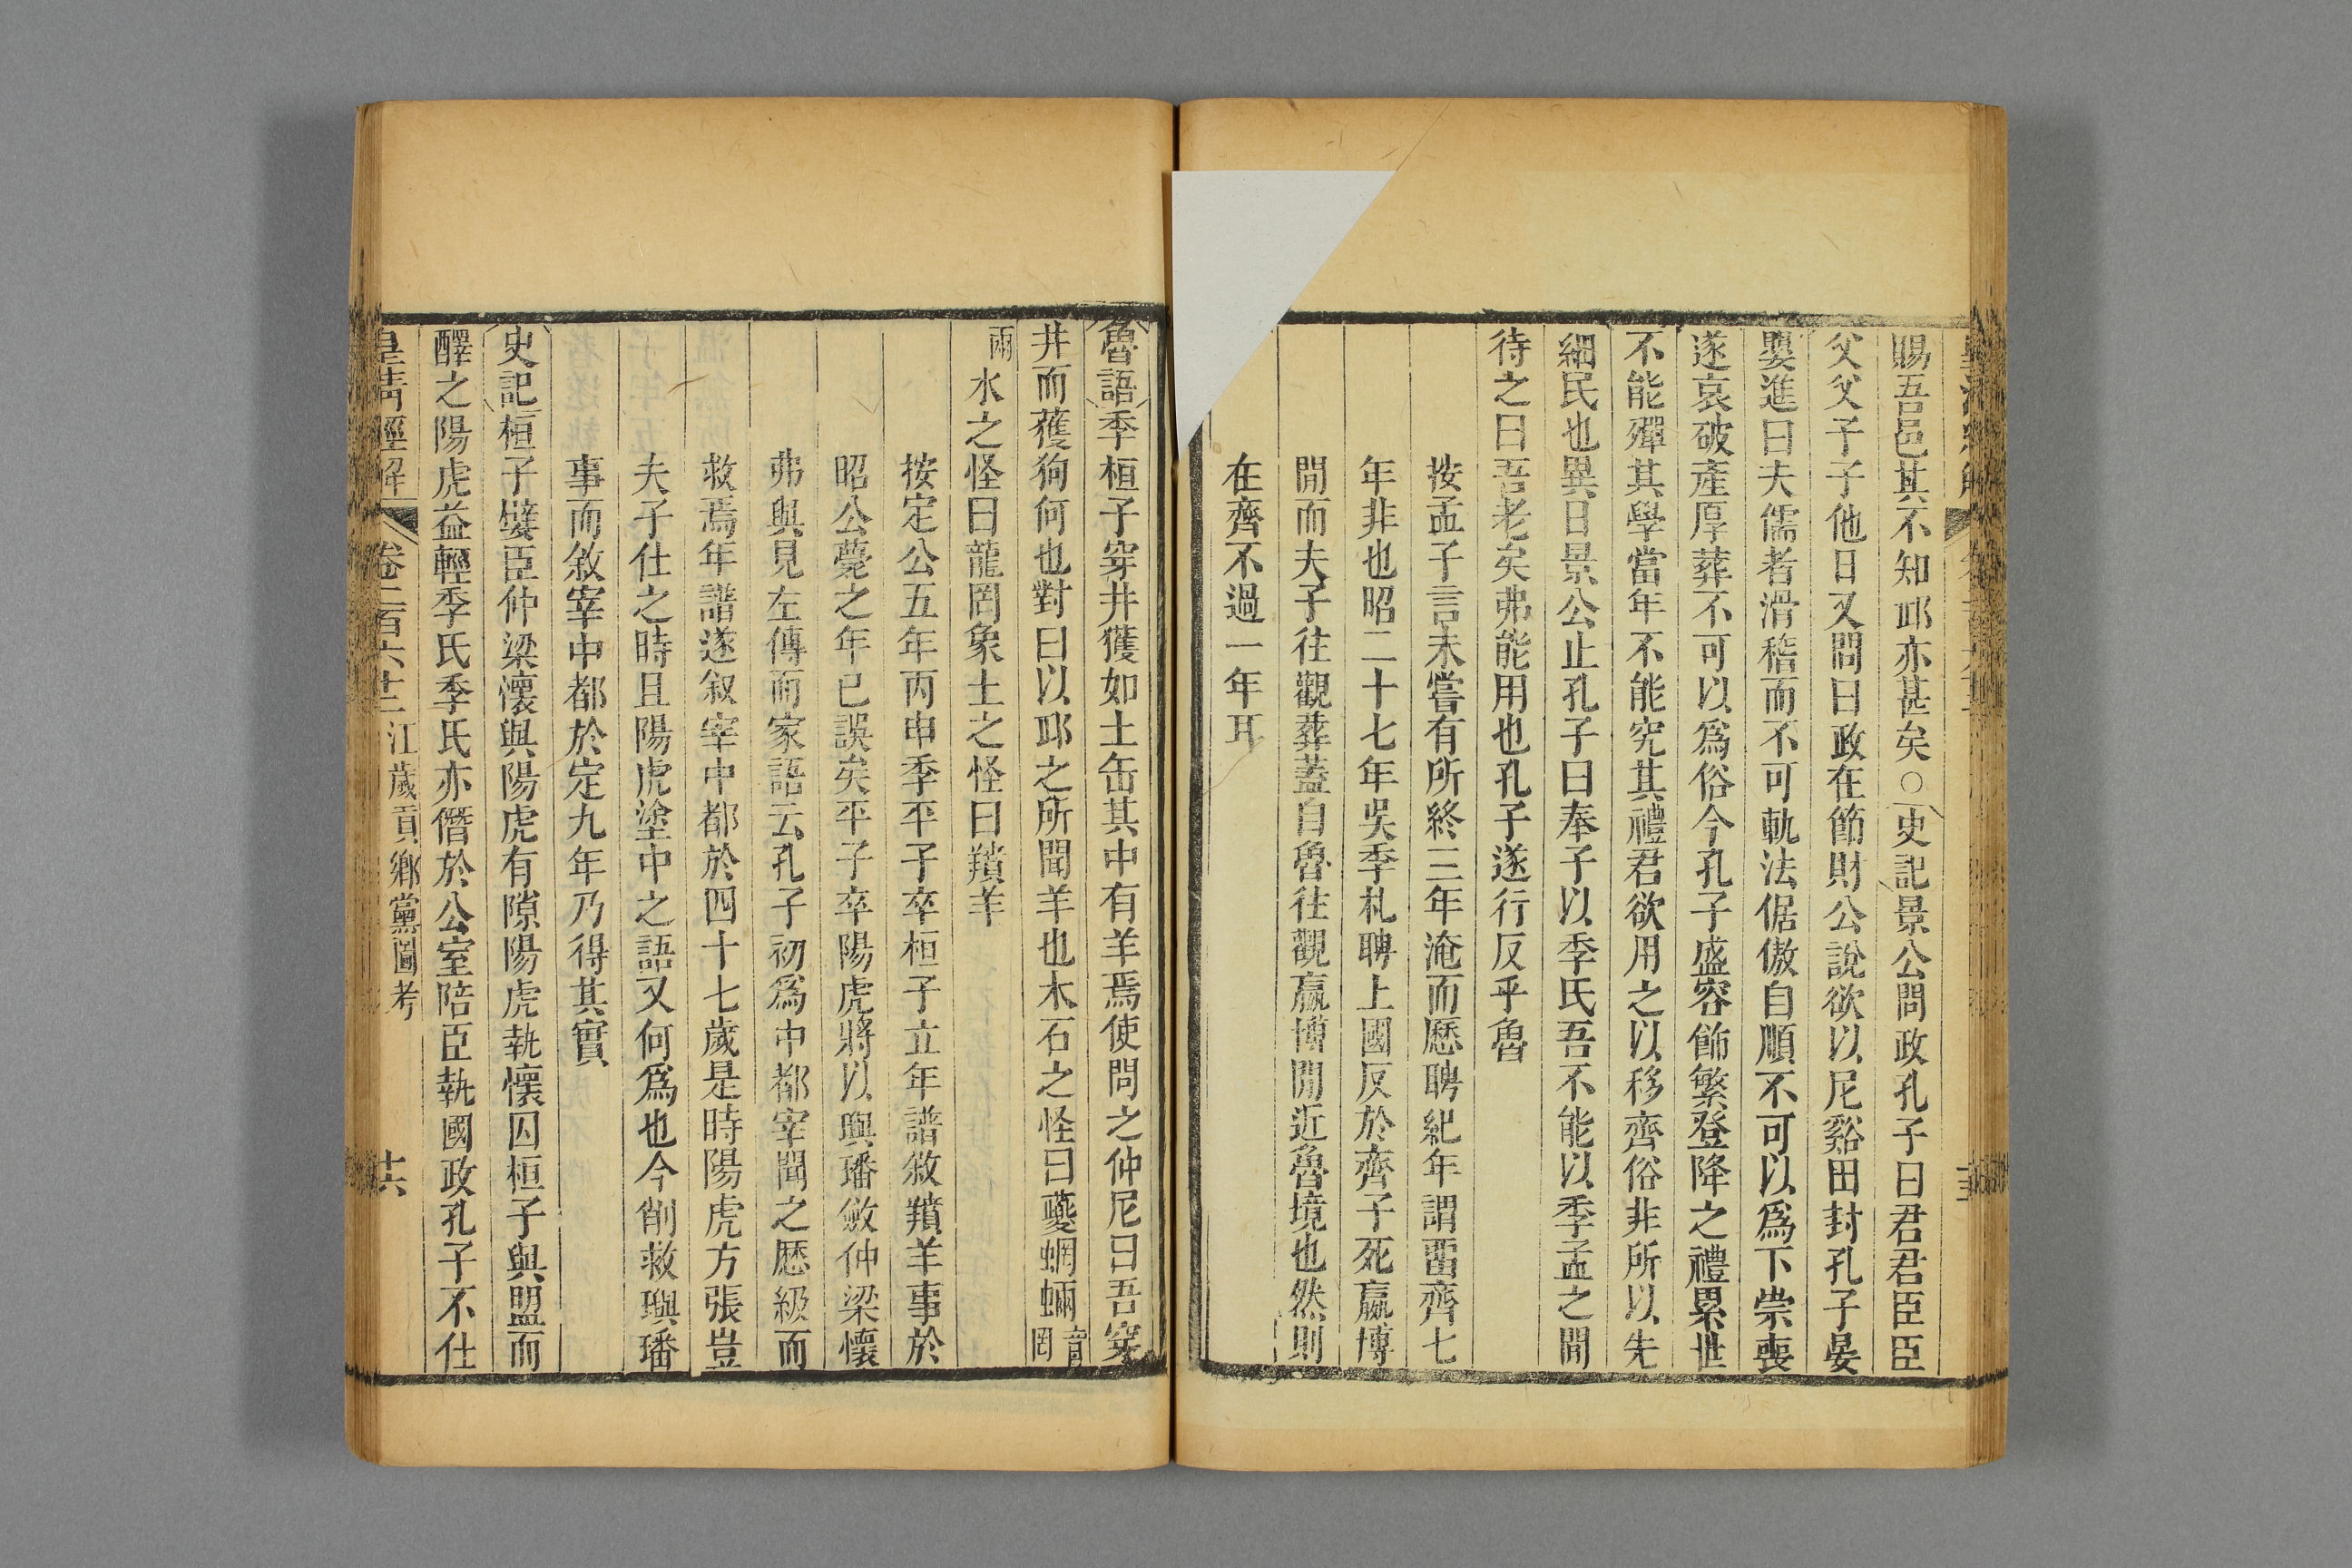 賜吾邑其不知邱亦甚矣○史記景公問政孔子曰君君臣臣
父父子子他日又問曰政在節財公說欲以尼谿田封孔子晏
嬰進曰夫儒者滑稽而不可軌法倨傲自順不可以爲下崇喪
遂哀破產厚葬不可以爲俗今孔子盛容飾繁登降之禮累世
不能殫其學當年不能究其禮君欲用之以移齊俗非所以先
細民也異日景公止孔子曰奉子以季氏吾不能以季孟之間
待之曰吾老矣弗能用也孔子遂行反乎魯
按孟子言未嘗有所終三年淹而歷聘紀年謂畱齊七
年非也昭二十七年吳季札聘上國反於齊子死嬴博
間而夫子往觀葬蓋自魯往觀嬴博間近魯境也然則
在齊不過一年耳
魯語季桓子穿井獲如土缶其中有羊焉使問之仲尼曰吾穿
井而獲狗何也對曰以邱之所聞羊也木石之怪曰夔蝄蜽音罔
兩水之怪曰龍罔象土之怪曰羵羊
按定公五年丙申季平子卒桓子立年譜敘羵羊事於
昭公薨之年已誤矣平子卒陽虎將以璵璠斂仲梁懷
弗與見左傳而家語云孔子初爲中都宰聞之歷級而
救焉年譜遂叙宰中都於四十七歲是時陽虎方張豈
夫子仕之時且陽虎塗中之語又何爲也今削救璵璠
事而敘宰中都於定九年乃得其實
史記桓子嬖臣仲梁懷與陽虎有隙陽虎執懷囚桓子與盟而
醳之陽虎益輕季氏季氏亦僭於公室陪臣執國政孔子不仕
皇清經解 卷二百六十二 江歲貢鄉黨圖考 十六